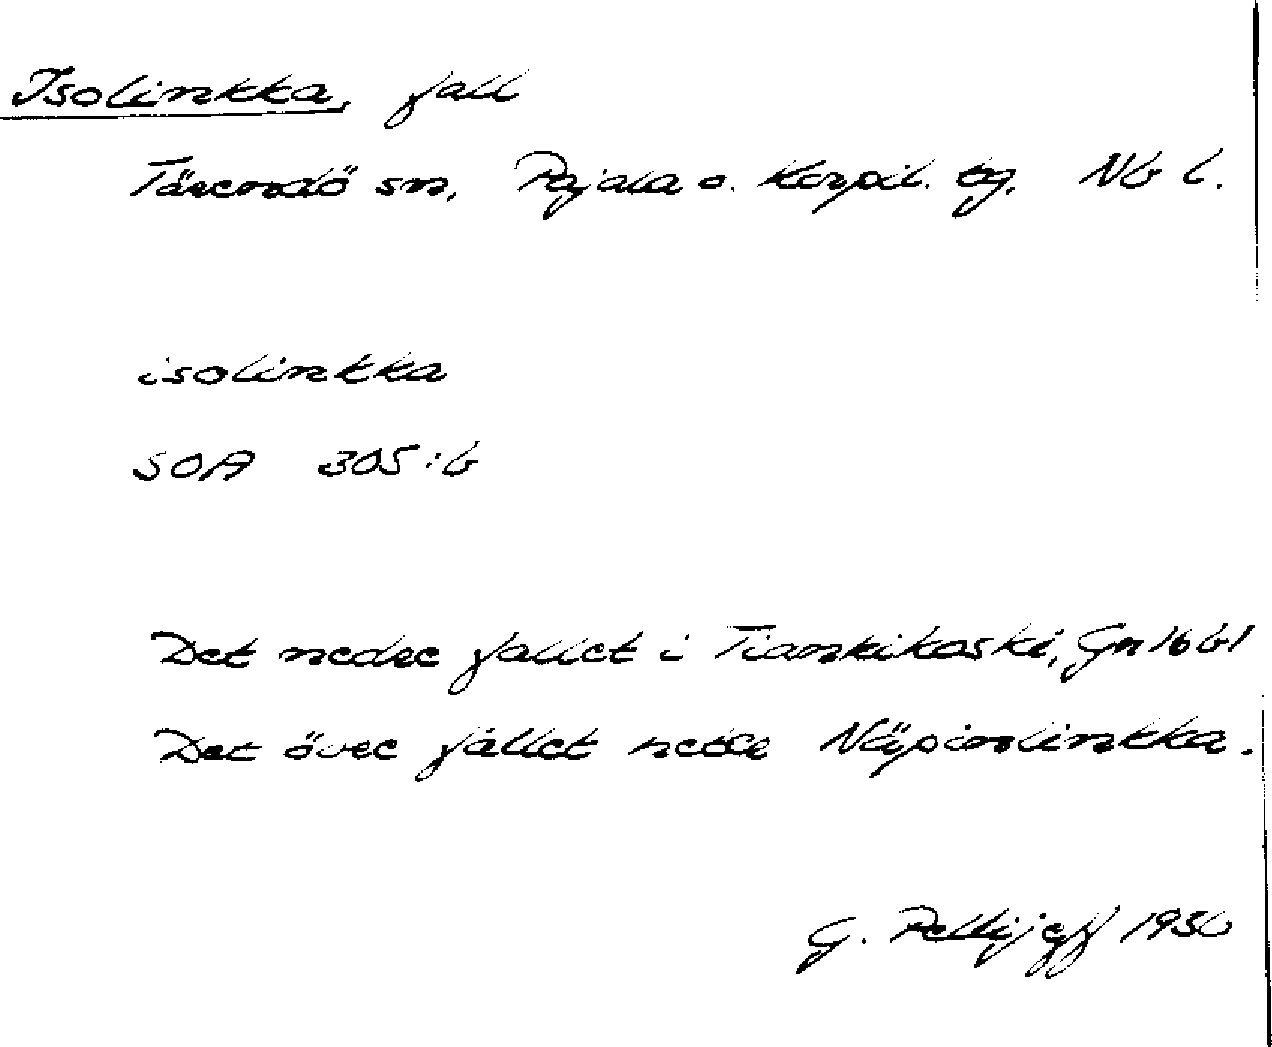 Isolinkka, fall
Tärendö sn, Pajala o. Korpil. tg. Nb l.
isolinkka
SOA 305:6
Det nedre fallet i Tiankikoski, Gn 16 61
Det övre fallet netöm Näpinlinkka.
G. Pellijeff 1936